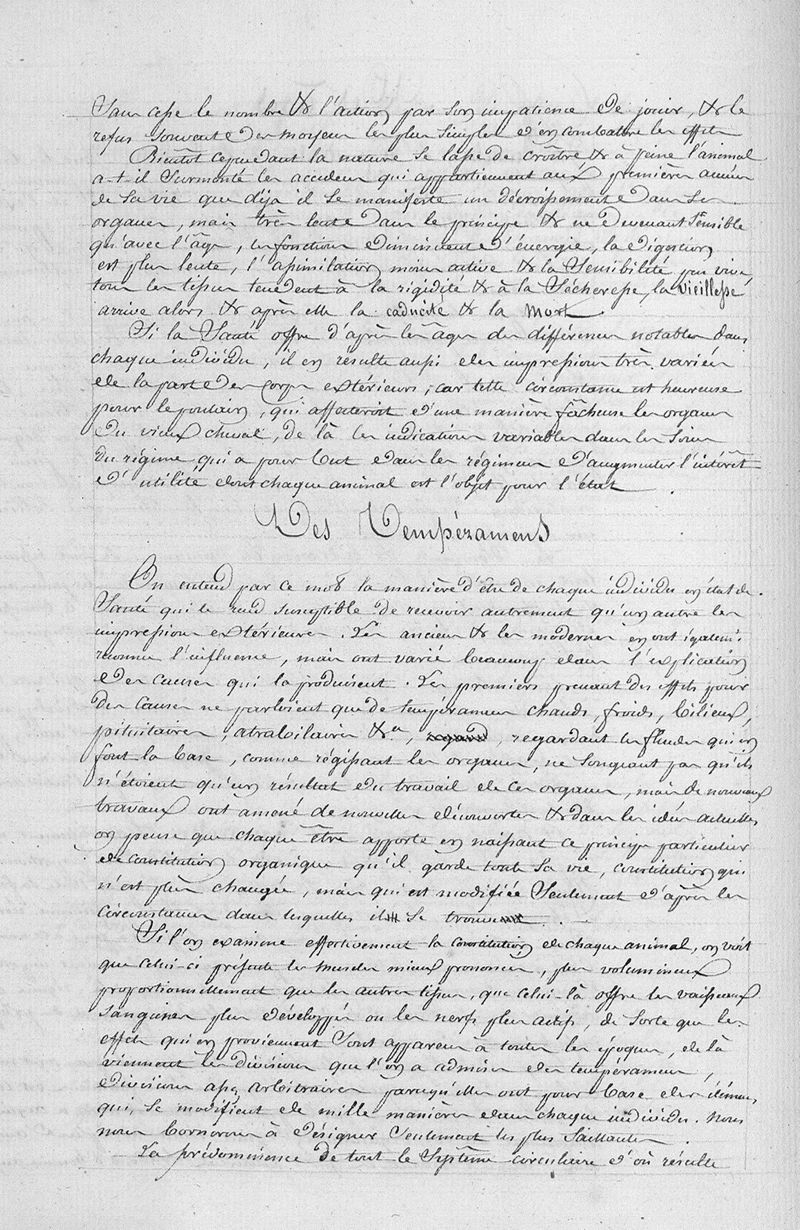 sans cesse le nombre & l'action par son impatience de jouir, & le
refus souvent des moyens les plus simples d'en combattre les effets
Bientôt cependant la nature se lasse de croître & à peine l'animal
a-t-il surmonté les accidens qui appartiennent aux premières années
de sa vie que déja il se manifeste un décroissement dans ses
organes, mais très lent dans le principe & ne devenant sensible
qu'avec l'âge, les fonctions diminuent d'énergie, la digestion
est plus lente, l'assimilation moins active & la sensibilité peu vive,
tous les tissus tendent à la rigidité & à la sécheresse, la vieillesse
arrive alors & après elle la caducité & la mort
Si la santé offre d'après les âges des différences notables dans
chaque individu, il en résulte aussi des impressions très variées
de la part des corps extérieurs, car telle circonstance est heureuse
pour le poulain, qui affecteroit d'une manière fâcheuse les organes
du vieux cheval, de là les indications variables dans les soins
du régime qui a pour but dans les régimens d'augmenter l'intérêt
d'utilité dont chaque animal est l'objet pour l'état.
Des Tempéramens
On entend par ce mot la manière d'être de chaque individu en état de
santé qui le rend susceptible de recevoir autrement qu'un autre les
impressions extérieures. Les anciens & les modernes en ont égalemt
reconnu l'influence, mais ont varié beaucoup dans l'explication
des causes qui la produisent. Les premiers prenant des effets pour
des causes ne parloient que de tempéramens chauds, froids, bilieux,
pituitaires, atrabilaires &a, regardant les fluides qui en
font la base, comme régissant les organes, ne songeant pas qu'ils
n'étoient qu'un résultat du travail de ces organes, mais de nouveaux
travaux ont amené de nouvelles découvertes & dans les idées actuelles
on pense que chaque être apporte en naissant ce principe particulier
de constitution organique qu'il garde toute sa vie, constitution qui
n'est plus changée, mais qui est modifiée seulement d'après les
circonstances dans lesquelles il se trouve.
Si l'on examine effectivement la constitution de chaque animal, on voit
que celui-ci présente les muscles mieux prononcés, plus volumineux
proportionnellement que les autres tissus, que celui-là offre les vaisseaux
sanguins plus développés ou les nerfs plus actifs, de sorte que les
effets qui en proviennent sont apparens à toutes les époques, de là
viennent les divisions que l'on a admises des tempéramens,
divisions assez arbitraires parcequ'elles ont pour base des élémens
qui se modifient de mille manières dans chaque individu. Nous
nous bornerons à désigner seulement les plus saillantes.
La prédominence de tout le système circulaire d'où résulte